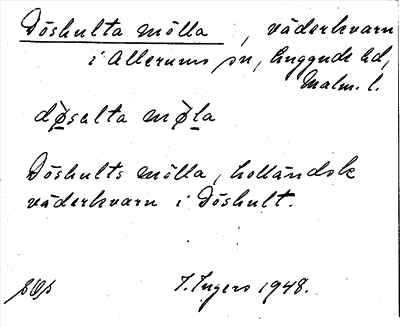 Döshulta mölla, väderkvarn
i Allerums sn, Luggude hd,
Malm. l.
dø̀salta mø̀la
Döshults mölla, holländsk
väderkvarn i Döshult.
I. Ingers 1948.